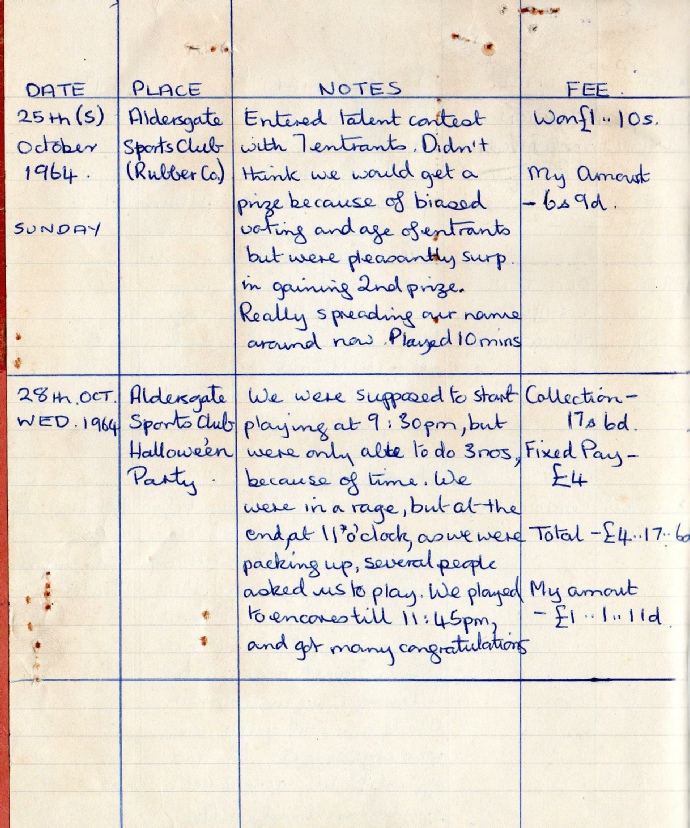 DATE PLACE NOTES FEE.
25th (S)
October
1964.
SUNDAY
Aldersgate
Sports Club
(Rubber Co.)
Entered talent contest
with 7 entrants. Didn't
think we would get a
prize because of biased
voting and age of entrants
but were pleasantly surp.
in gaining 2nd prize.
Really spreading our name
around now. Played 10 mins
Won £1..10s.
My Amount
- 6s 9d.
28th. OCT.
WED. 1964
Aldersgate
Sports Club
Hallowe'en
Party.
We were supposed to start
playing at 9:30pm, but
were only able to do 3 nos,
because of time. We
were in a rage, but at the
end, at 11 o'clock, as we were
packing up, several people
asked us to play. We played
to encores till 11:45pm,
and got many congratulations
Collection -
17s 6d.
Fixed Pay -
£4
Total - £4..17..6
My amout
- £1..1..11d.